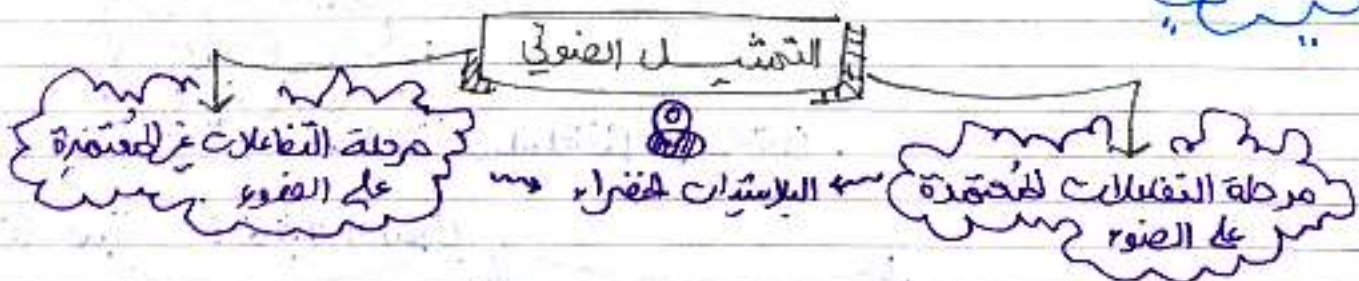 التمثيل الضوئي
مرحلة التفاعلات المُعتمدة
على الضوء
البلاستيدات الخضراء
مرحلة التفاعلات غير المُعتمدة
على الضوء